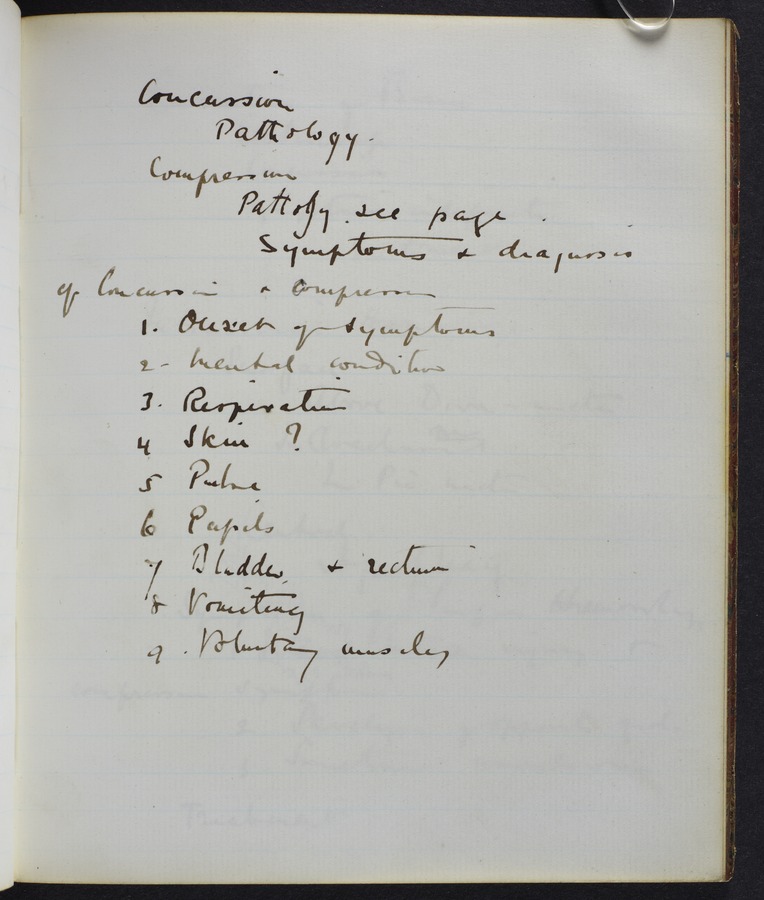 Concussion
Pathology.
Compression
Pathology see page .
Symptoms & diagnosis
of Concussion & compression
1. Onset of symptoms
2 - Mental condition
3. Respiration
4 Skin ?
5 Pulse
6 Pupils
7 Bladder & rectum
8 Vomiting
9. Voluntary muscles